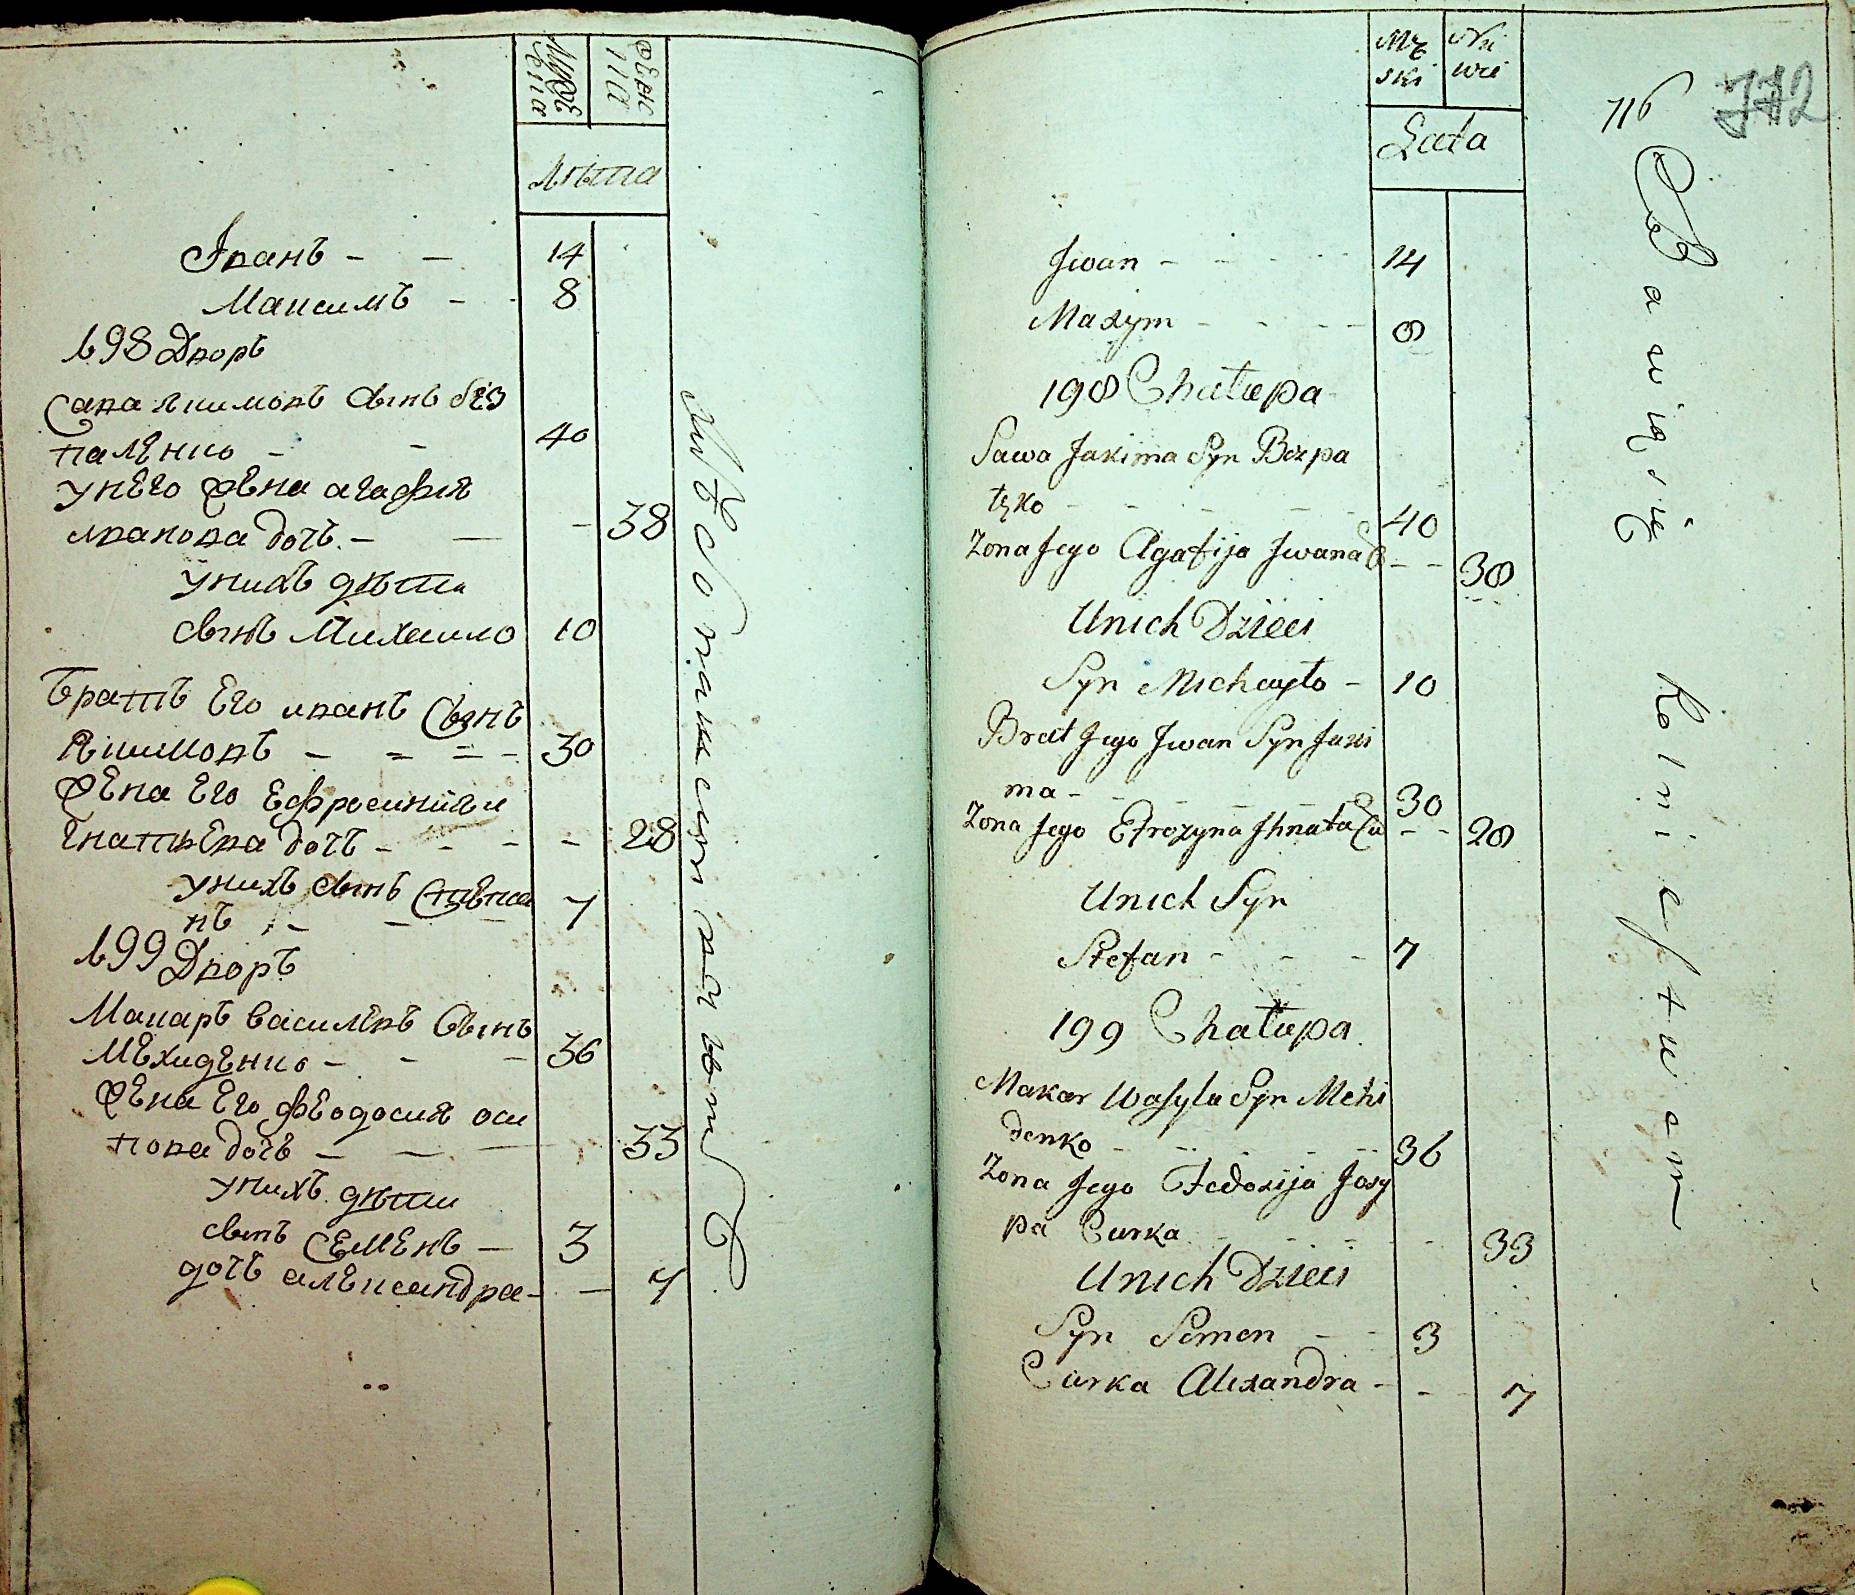 мужеска
женска
лѣта
Іванъ - - 14
Максимъ - - 8
198 Дворъ
Сава якимовъ сынъ без
паленко - - 40
у него жена агафия
иванова дочь - - 38
у нихъ дѣти
сынъ Михаило 10
братъ его иванъ Сынъ
Якимовъ - - - - 30
жена его ефросиния и
гнатьева дочь - - - - 28
у нихъ сынъ Степа
нъ - - - 7
199 Дворъ
Макаръ василевъ Сынъ
мехиденко - - - 36
жена его феодосия оси
пова дочь - - - 33
у нихъ дѣти
сынъ Семенъ - 3
дочь александра - - 7
Mę
ski
Nie
wie
Lata
716
772
Jwan - - - - 14
Maxym - - - - 8
198 Chałupa
Sawa Jakima Syn Bezpa
łęko - - - - 40
Zona Jego Agafija Jwana C - - 38
Unich Dzieci
Syn Michayło - 10
Brat Jego Jwan Syn Jaki
ma - - - - 30
Zona Jego Efrozyna Jhnata Cu - - 28
Unich Syn
Stefan - - - 7
199 Chałupa
Makar Wasyla Syn Mehi
denko - - - - 36
Zona Jego Fedozija Josy
pa Curka - - - - 33
Unich Dzieci
Syn Semen - - 3
Curka Alexandra - - 7